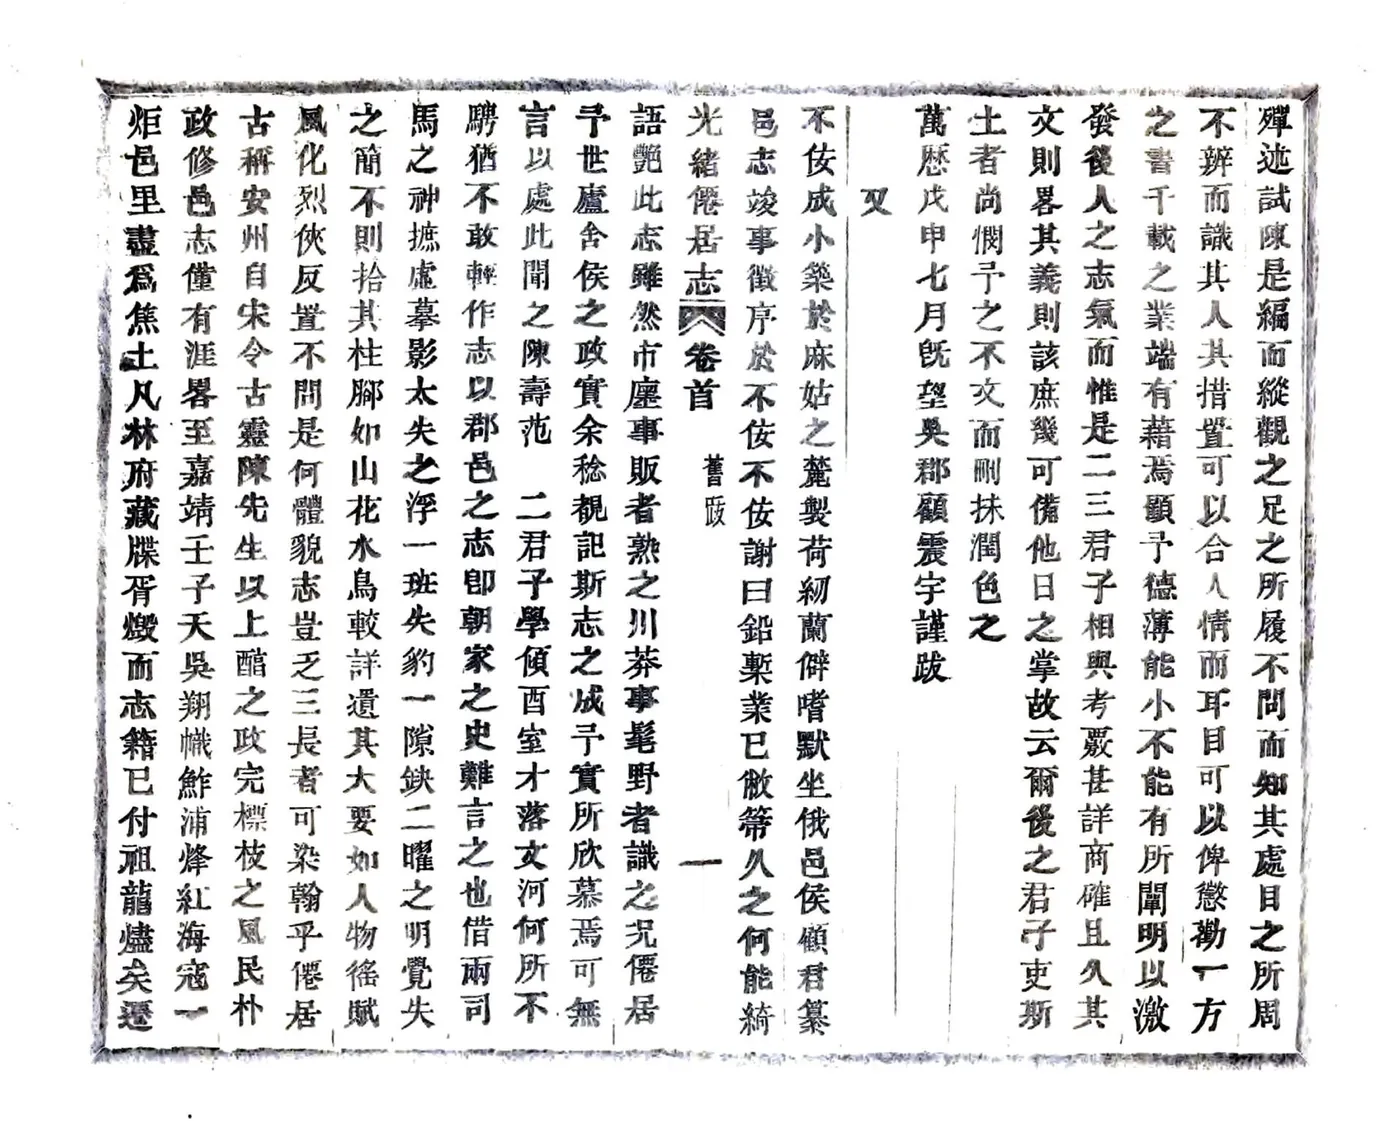 殫述試陳是編而縱觀之足之所履不問而知其處目之所周
不辨而識其人其措置可以合人情而耳目可以俾懲勸一方
之書千載之業端有藉焉顧予德薄能小不能有所闡明以激
發後人之志氣而惟是二三君子相與考覈甚詳商確且久其
文則畧其義則該庶幾可備他日之掌故云爾後之君子吏斯
土者尚憫予之不文而刪抹潤色之
萬歷戊申七月旣望吳郡顧震宇謹跋
又
不佞成小築於麻姑之麓製荷紉蘭僻嗜默坐俄邑侯顧君纂
邑志竣事徵序於不佞不佞謝曰鉛槧業已敝箒久之何能綺
光緒僊居志 卷首 舊跋 一
語艷此志雖然市廛事販者熟之川莽事髦野者識之況僊居
予世廬舍侯之政實余稔覩記斯志之成予實所欣慕焉可無
言以處此聞之陳壽范 二君子學傾酉室才落文河何所不
騁猶不敢輕作志以郡邑之志卽朝家之史難言之也借兩司
馬之神摭虛摹影太失之浮一班失豹一隙鈌二曜之明覺失
之簡不則拾其柱腳如山花水鳥較詳遺其大要如人物徭賦
風化烈俠反置不問是何體貌志豈乏三長者可染翰乎僊居
古稱安州自宋令古靈陳先生以上醕之政完標枝之風民朴
政修邑志僅有涯畧至嘉靖壬子天吳翔幟鮓浦烽紅海寇一
炬邑里盡爲焦土凡林府藏牒胥燬而志籍已付祖龍燼矣遷